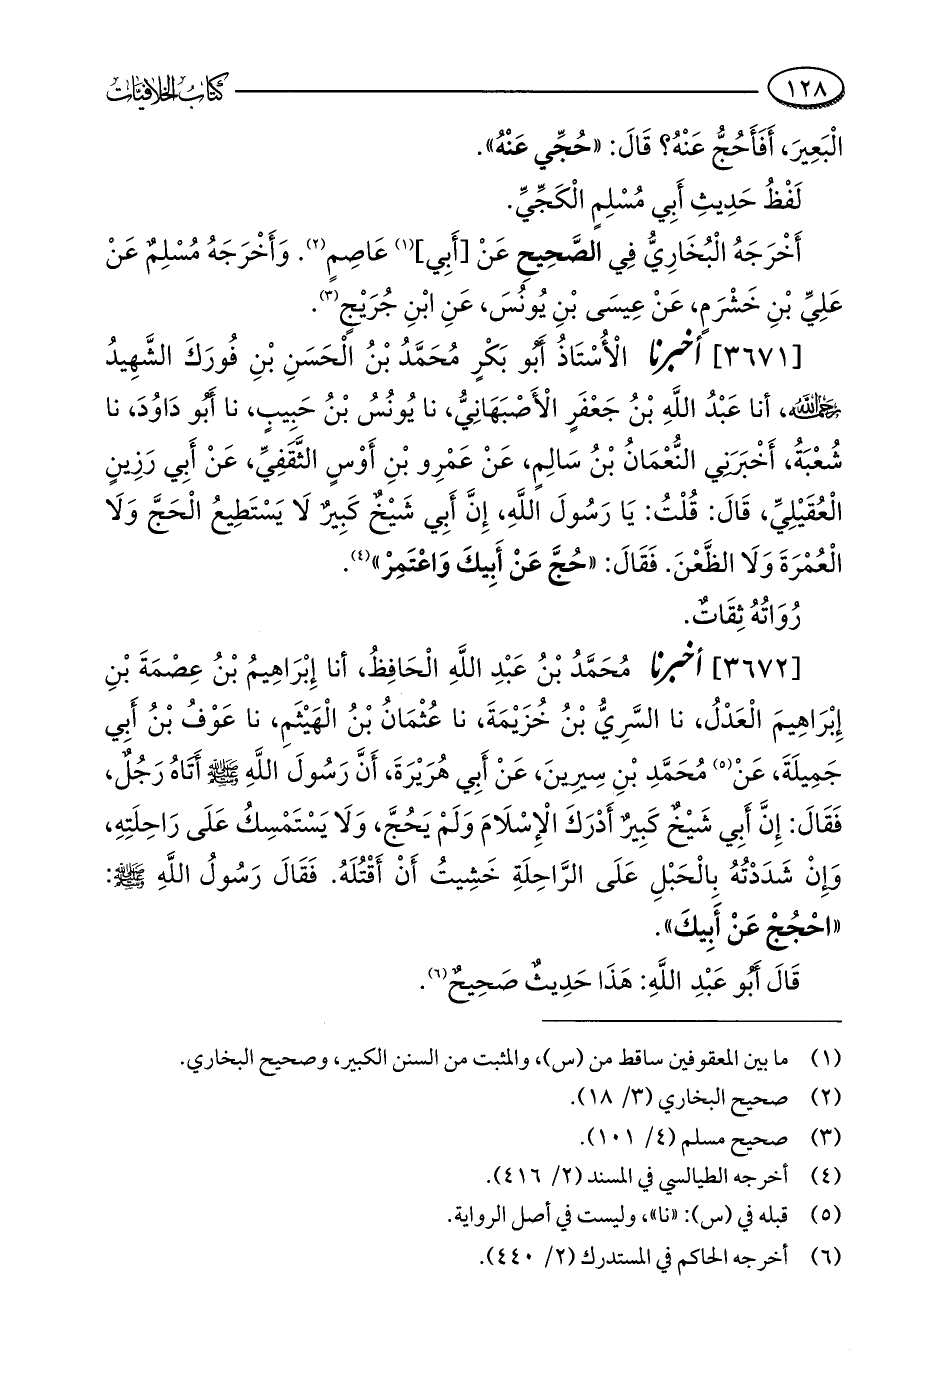 ١٢٨ كتاب الخلافيات
الْبَعِيرَ، أَفَأَحُجُّ عَنْهُ؟ قَالَ: «حُجِّي عَنْهُ».
لَفْظُ حَدِيثِ أَبِي مُسْلِمٍ الْكَجِّيِّ.
أَخْرَجَهُ الْبُخَارِيُّ فِي الصَّحِيحِ عَنْ [أَبِي](١) عَاصِمٍ(٢). وَأَخْرَجَهُ مُسْلِمٌ عَنْ
عَلِيِّ بْنِ خَشْرَمٍ، عَنْ عِيسَى بْنِ يُونُسَ، عَنِ ابْنِ جُرَيْجٍ(٣).
[٣٦٧١] أخبرنا الْأُسْتَاذُ أَبُو بَكْرٍ مُحَمَّدُ بْنُ الْحَسَنِ بْنِ فُورَكَ الشَّهِيدُ
رحمه الله، أنا عَبْدُ اللَّهِ بْنُ جَعْفَرٍ الْأَصْبَهَانِيُّ، نا يُونُسُ بْنُ حَبِيبٍ، نا أَبُو دَاوُدَ، نا
شُعْبَةُ، أَخْبَرَنِي النُّعْمَانُ بْنُ سَالِمٍ، عَنْ عَمْرِو بْنِ أَوْسٍ الثَّقَفِيِّ، عَنْ أَبِي رَزِينٍ
الْعُقَيْلِيِّ، قَالَ: قُلْتُ: يَا رَسُولَ اللَّهِ، إِنَّ أَبِي شَيْخٌ كَبِيرٌ لَا يَسْتَطِيعُ الْحَجَّ وَلَا
الْعُمْرَةَ وَلَا الظَّعْنَ. فَقَالَ: «حُجَّ عَنْ أَبِيكَ وَاعْتَمِرْ»(٤).
رُوَاتُهُ ثِقَاتٌ.
[٣٦٧٢] أخبرنا مُحَمَّدُ بْنُ عَبْدِ اللَّهِ الْحَافِظُ، أنا إِبْرَاهِيمُ بْنُ عِصْمَةَ بْنِ
إِبْرَاهِيمَ الْعَدْلُ، نا السَّرِيُّ بْنُ خُزَيْمَةَ، نا عُثْمَانُ بْنُ الْهَيْثَمِ، نا عَوْفُ بْنُ أَبِي
جَمِيلَةَ، عَنْ(٥) مُحَمَّدِ بْنِ سِيرِينَ، عَنْ أَبِي هُرَيْرَةَ، أَنَّ رَسُولَ اللَّهِ ﷺ أَتَاهُ رَجُلٌ،
فَقَالَ: إِنَّ أَبِي شَيْخٌ كَبِيرٌ أَدْرَكَ الْإِسْلَامَ وَلَمْ يَحُجَّ، وَلَا يَسْتَمْسِكُ عَلَى رَاحِلَتِهِ،
وَإِنْ شَدَدْتُهُ بِالْحَبْلِ عَلَى الرَّاحِلَةِ خَشِيتُ أَنْ أَقْتُلَهُ. فَقَالَ رَسُولُ اللَّهِ ﷺ:
«احْجُجْ عَنْ أَبِيكَ».
قَالَ أَبُو عَبْدِ اللَّهِ: هَذَا حَدِيثٌ صَحِيحٌ(٦).
(١) ما بين المعقوفين ساقط من (س)، والمثبت من السنن الكبير، وصحيح البخاري.
(٢) صحيح البخاري (٣/ ١٨).
(٣) صحيح مسلم (٤/ ١٠١).
(٤) أخرجه الطيالسي في المسند (٢/ ٤١٦).
(٥) قبله في (س): «نا»، وليست في أصل الرواية.
(٦) أخرجه الحاكم في المستدرك (٢/ ٤٤٠).